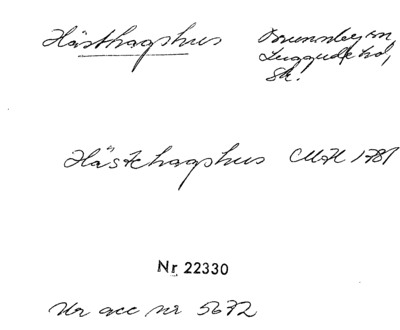 Hästhagshus
Brunnby sn,
Luggude hd,
Sk.
Hästehagshus CMH 1781
Nr 22330
Ur acc nr 5672